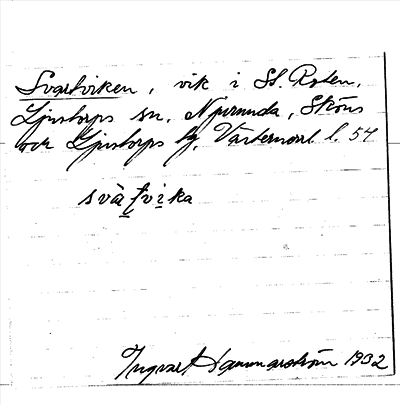 Svartviken, vik i St. Rsten,
Ljustorps sn. Njurunda, Sköns
och Ljustorps tg. Västernorrl. l. 54
svàt̯vi̯ka
Ingvar Hammarström 1932